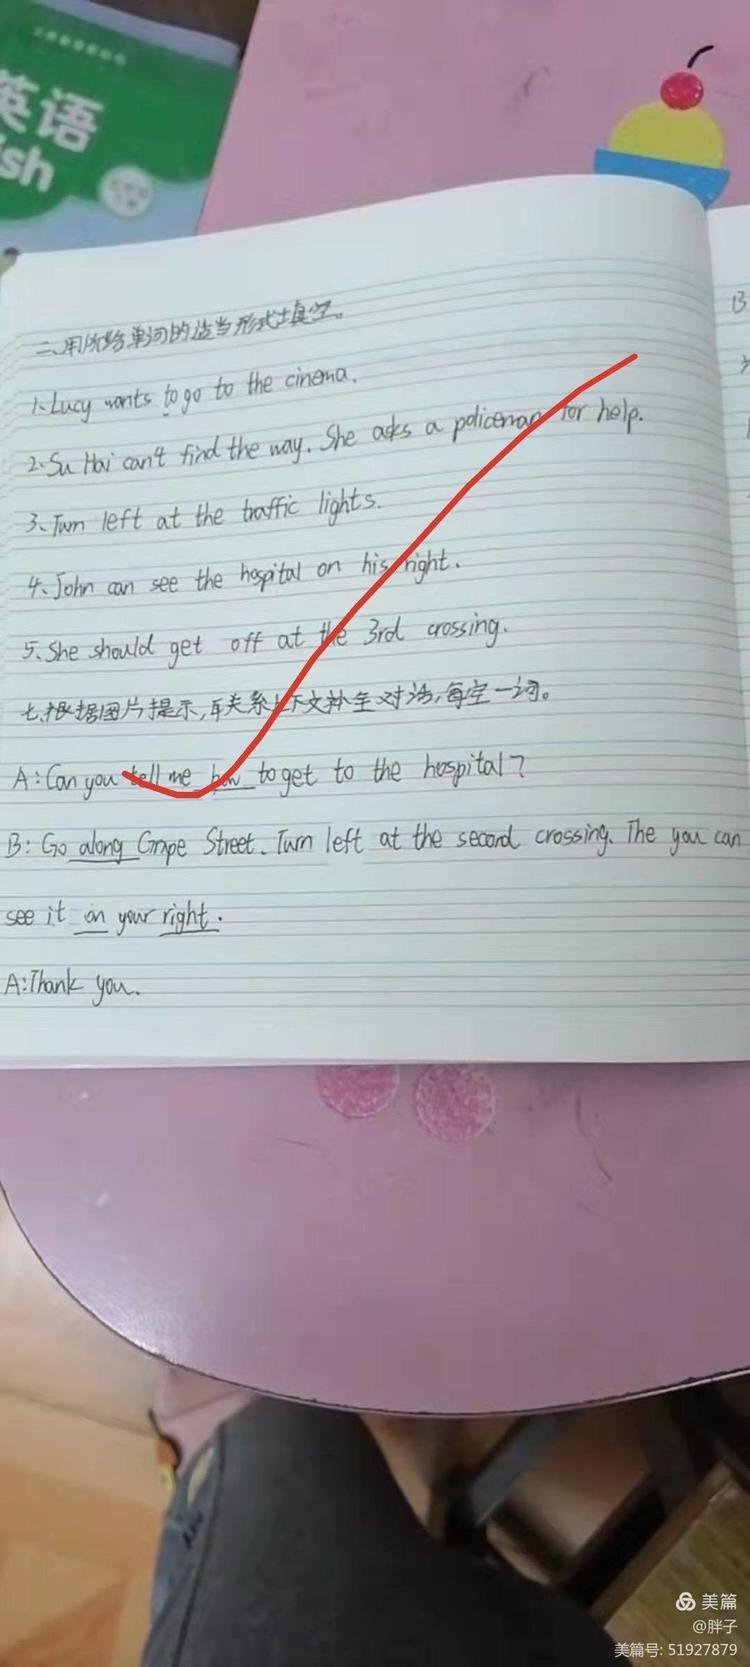 英语
ish
二、用所给单词的适当形式填空。
1. Lucy wants to go to the cinema.
2. Su Hai can't find the way. She asks a policeman for help.
3、Turn left at the traffic lights.
4、John can see the hospital on his right.
5、She should get off at the 3rd crossing.
七、根据图片提示,联系上下文补全对话,每空一词。
A: Can you tell me how to get to the hospital?
B: Go along Grape Street. Turn left at the second crossing. The you can
see it on your right.
A: Thank you.
美篇
@胖子
美篇号: 51927879